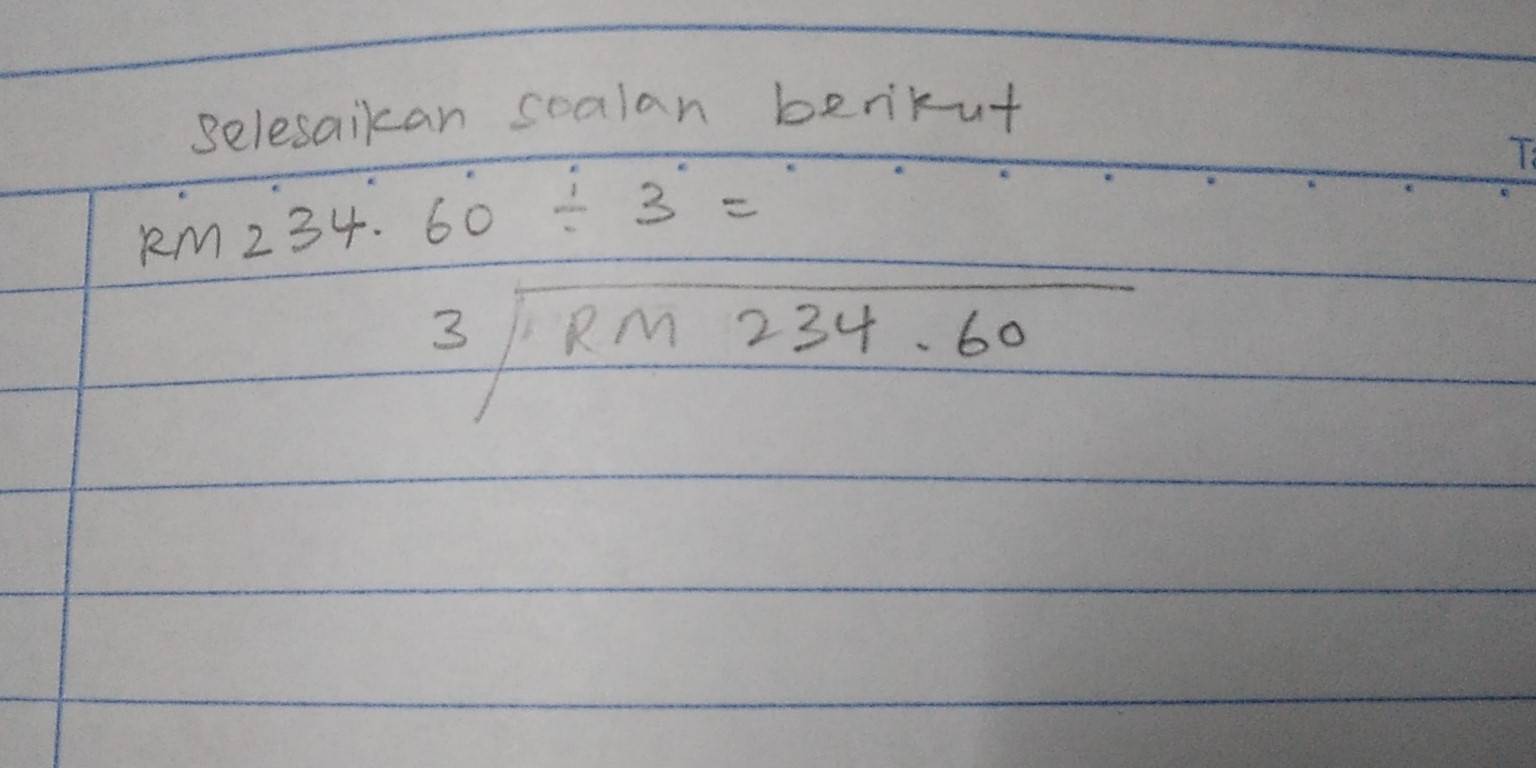 Selesaikan soalan berikut
RM 234.60 ÷ 3 =
3 RM 234.60